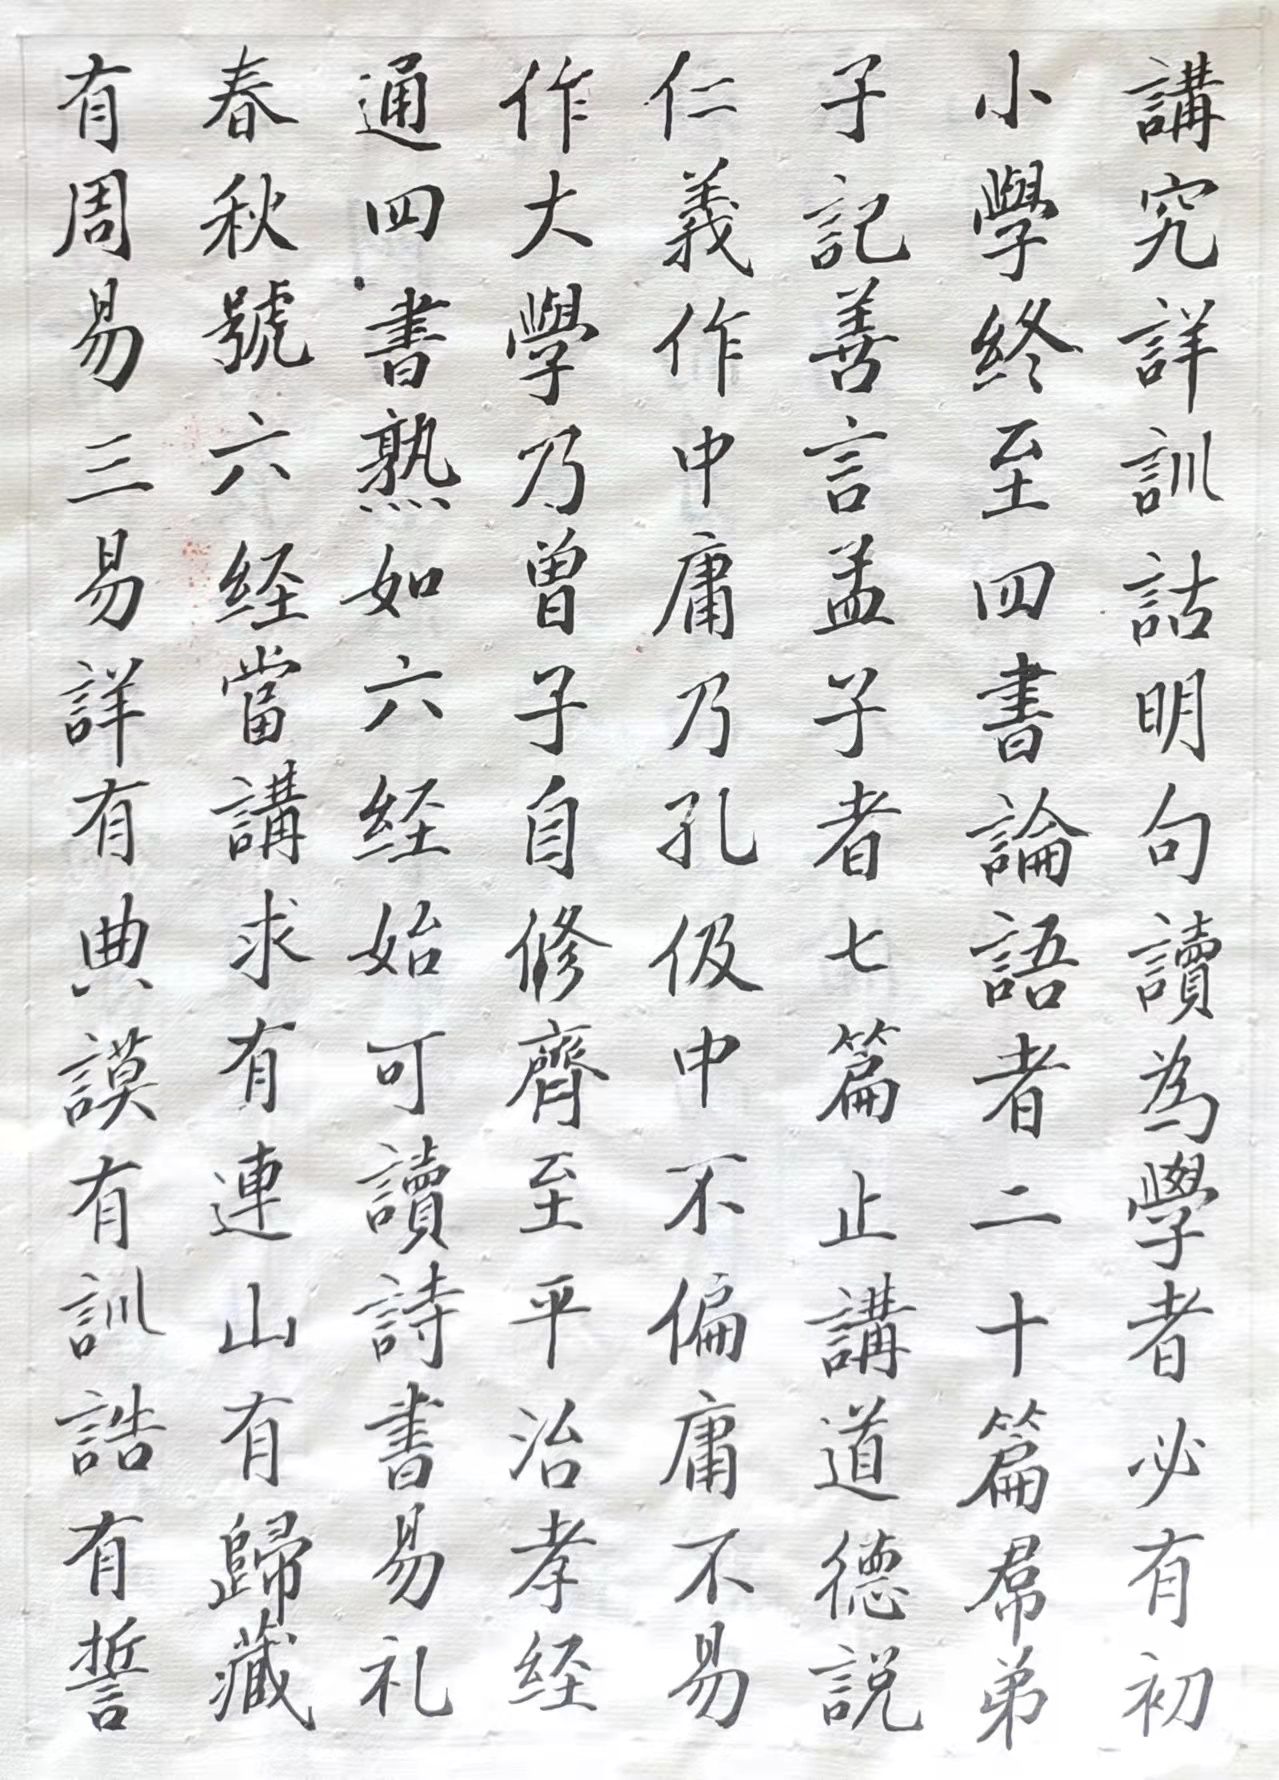 講究詳訓詁明句讀為學者必有初
小學終至四書論語者二十篇群弟
子記善言孟子者七篇止講道德説
仁義作中庸乃孔伋中不偏庸不易
作大學乃曾子自修齊至平治孝経
通四書熟如六経始可讀詩書易礼
春秋號六経當講求有連山有歸藏
有周易三易詳有典謨有訓誥有誓